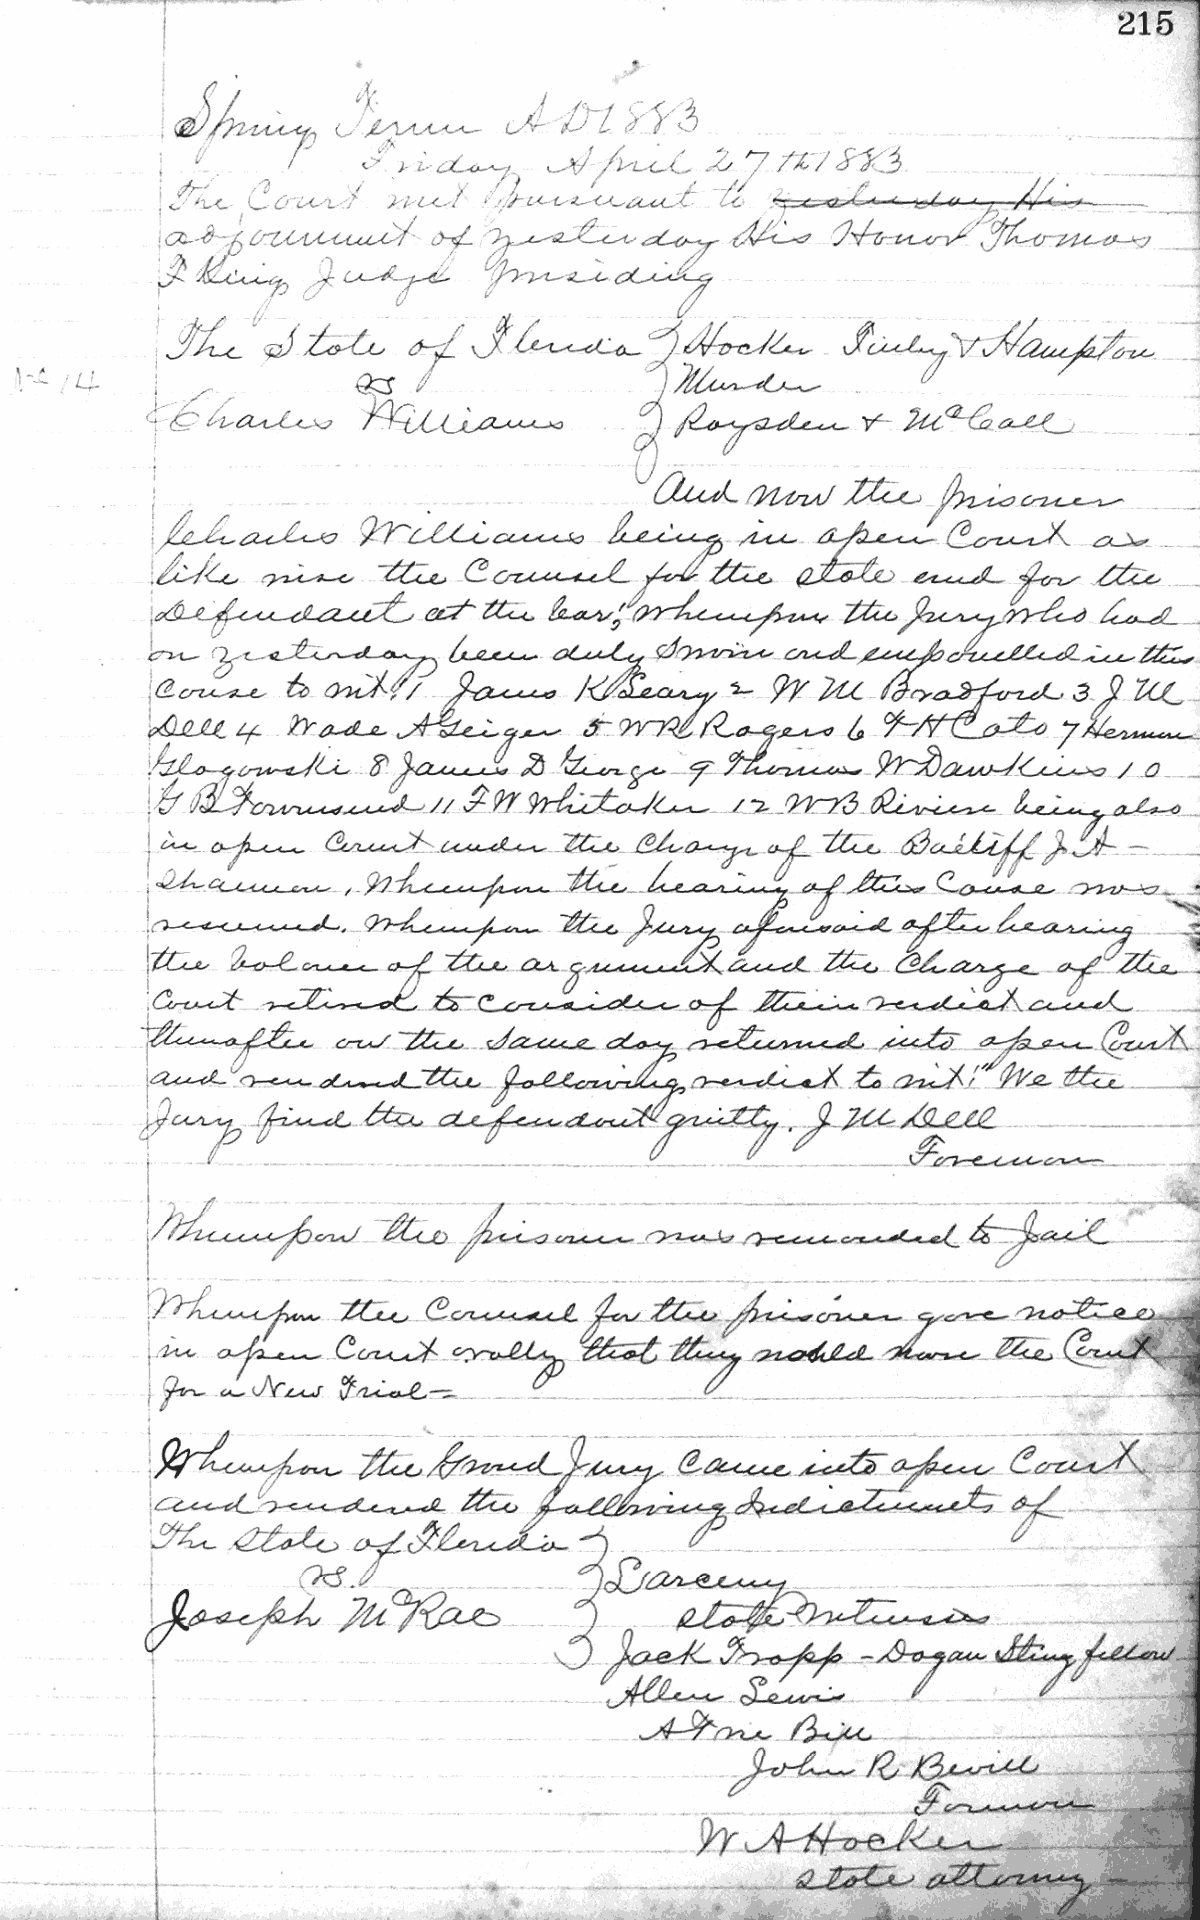 215
Spring Term AD 1883
Friday April 27th 1883
The Court met pursuant to yesterday His
adjournment of yesterday His Honor Thomas
F King Judge presiding
The State of Florida Hocker Finley & Hampton
No 14 vs Murder
Charles Williams Roysden & McCall
And now the prisoner
Charles Williams being in open Court as
like wise the Counsel for the state and for the
Defendant at the bar; Whereupon the Jury who had
on yesterday been duly sworn and empanelled in this
Cause to wit: 1 James K Geary 2 W M Bradford 3 J M
Dell 4 Wade A Geiger 5 W R Rogers 6 F H Cato 7 Herman
Glogowski 8 James D George 9 Thomas W Dawkins 10
G B Townsend 11 F W Whitaker 12 W B Riviere being also
in open Court under the charge of the Bailiff J A
Shannon, Whereupon the hearing of this Cause was
resumed. Whereupon the Jury aforesaid after hearing
the balance of the argument and the Charge of the
Court retired to consider of their verdict and
thereafter on the same day returned into open Court
and rendered the following verdict to wit: "We the
Jury find the defendant guilty. J M Dell
Foreman
Whereupon the prisoner was remanded to Jail
Whereupon the Counsel for the prisoner gave notice
in open Court orally that they would move the Court
for a New Trial =
Whereupon the Grand Jury came into open Court
and rendered the following Indictments of
The State of Florida
vs. Larceny
Joseph McRae State Witnesses
Jack Trapp - Dogan Stringfellow
Allen Lewis
A True Bill
John R Bevill
Foreman
W A Hocker
State attorney